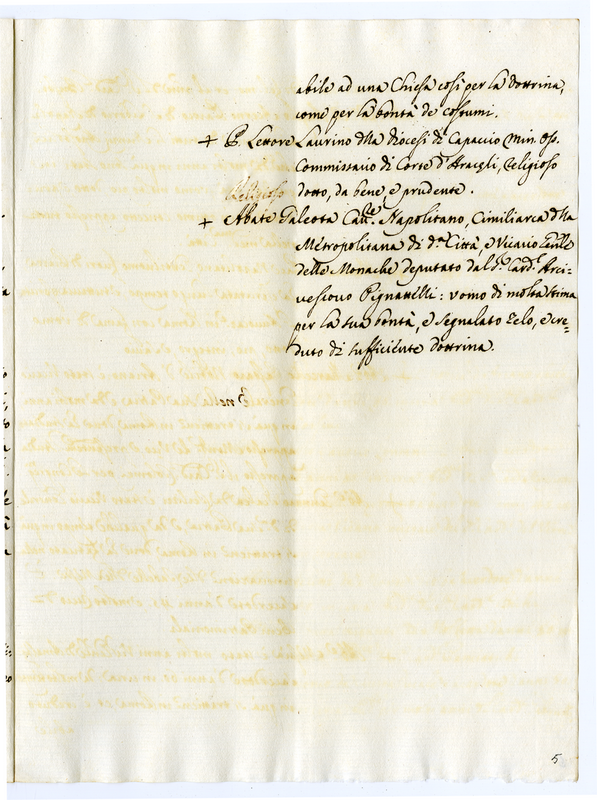 abile ad una Chiesa così per la dottrina,
come per la bontà de costumi.
+ P. Lettore Laurino della Diocesi di Capaccio Min. Oss.
Commissario di Corte d'Araceli, religioso
dotto, da bene e prudente.
Religioso
+ Abate Galeota Cau.re Napolitano, Cimiliarca della
Metropolitana di d.a Città, e Vicario Gen.le
delle Monache deputato dal S.r Card. Arci-
vescovo Pignattelli: uomo di molta stima
per la sua bontà, e segnalato zelo, e cre-
duto di sufficiente dottrina.
5